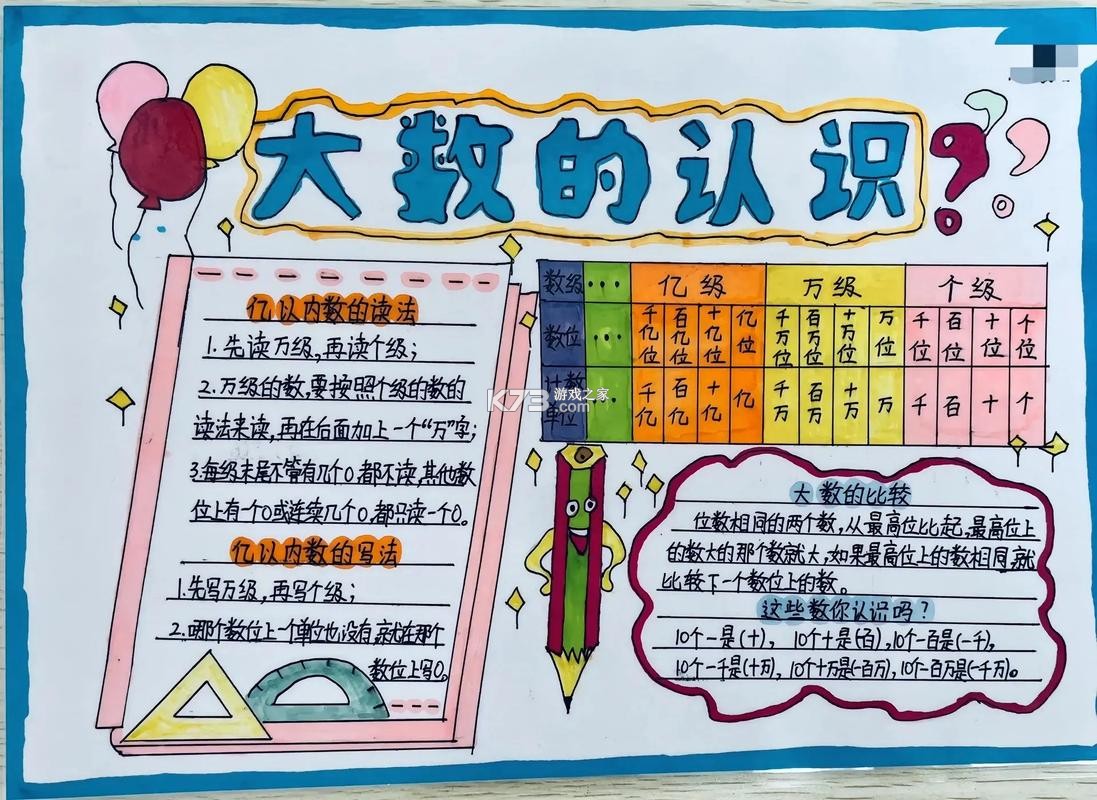 大数的认识
亿以内数的读法
1.先读万级,再读个级;
2.万级的数,要按照个级的数的
读法来读,再在后面加上一个“万”字;
3.每级末尾不管有几个0,都不读,其他数
位上有一个0或连续几个0,都只读一个0。
亿以内数的写法
1.先写万级,再写个级;
2.哪个数位上一个单位也没有,就在那个
数位上写0。
数级 … 亿级 万级 个级
数位 … 千亿位 百亿位 十亿位 亿位 千万位 百万位 十万位 万位 千位 百位 十位 个位
计数单位 … 千亿 百亿 十亿 亿 千万 百万 十万 万 千 百 十 个
K73游戏之家
.com
大数的比较
位数相同的两个数,从最高位比起,最高位上
的数大的那个数就大,如果最高位上的数相同,就
比较下一个数位上的数。
这些数你认识吗?
10个一是(十), 10个十是(百),10个一百是(一千),
10个一千是(十万),10个十万是(一百万),10个一百万是(一千万)。